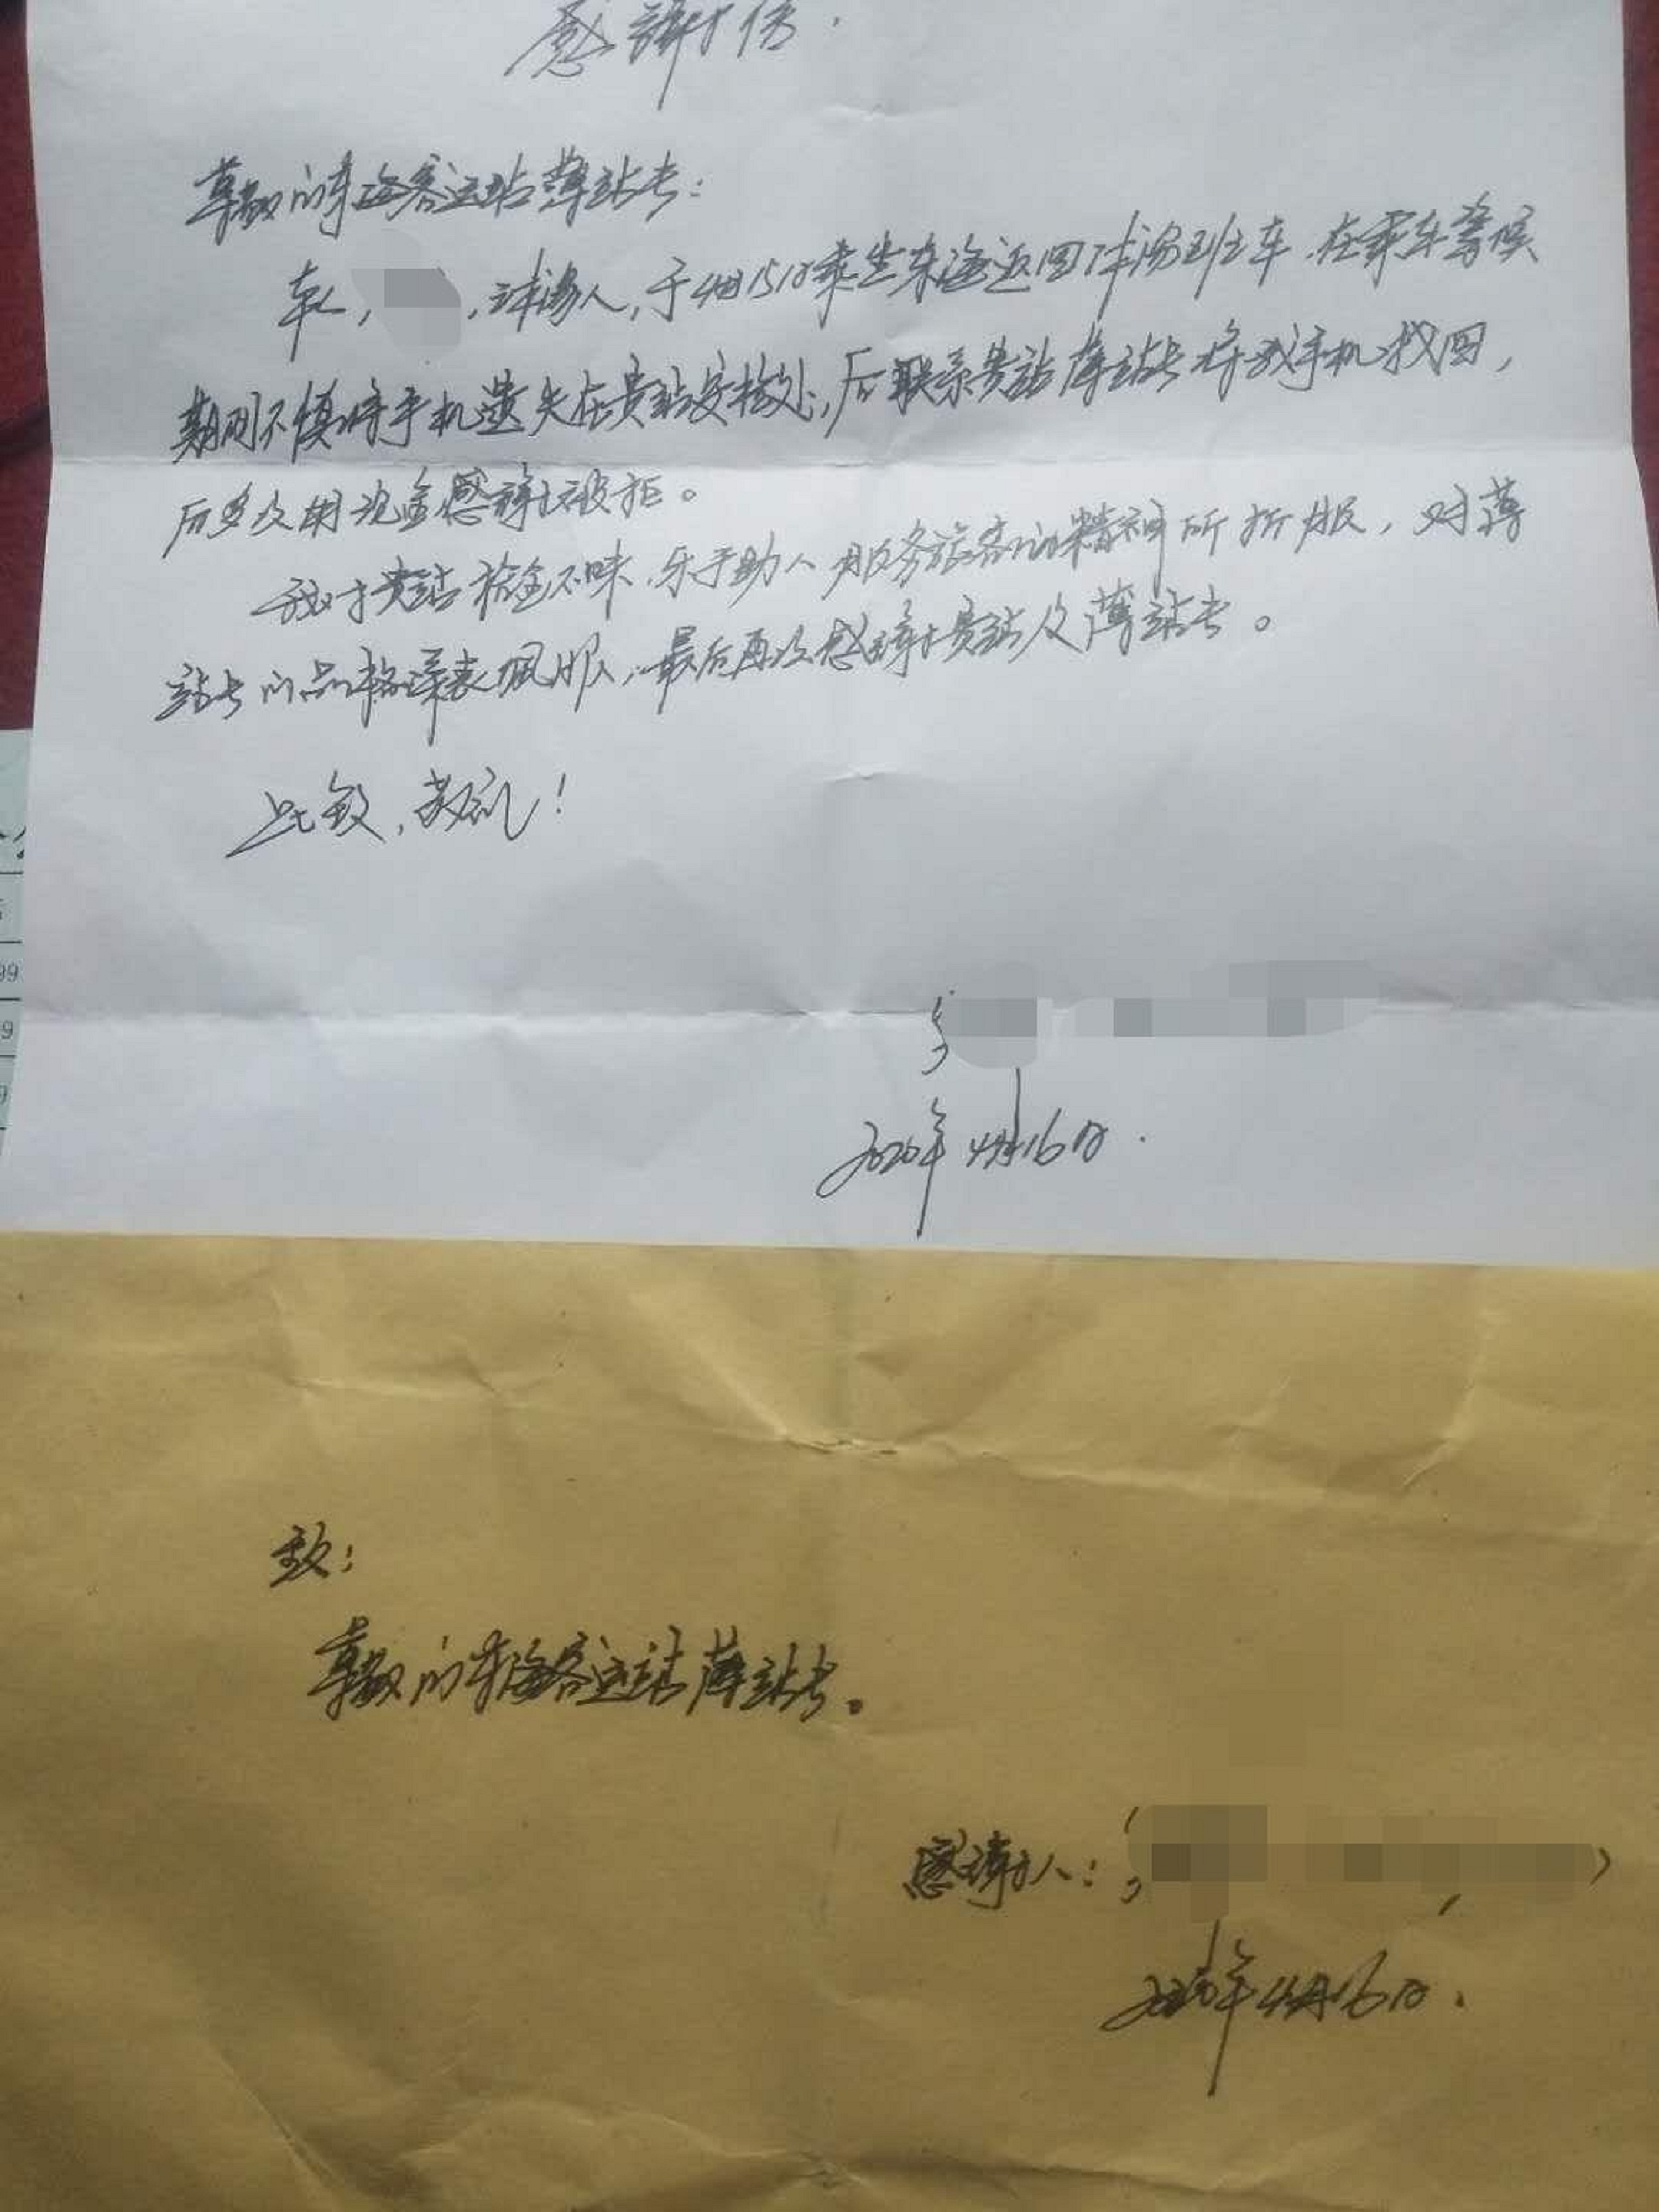 感谢信.
尊敬的东海客运站薄站长:
本人, ,沭阳人,于4月15日乘坐东海返回沭阳班车.在乘车等候
期间不慎将手机遗失在贵站安检处,后联系贵站薄站长将我手机找回,
后多次用现金感谢被拒。
我对贵站拾金不昧.乐于助人服务旅客的精神所折服,对薄
站长的品格深表佩服,最后再次感谢贵站及薄站长。
此致,敬礼!
2020年4月16日.
致:
尊敬的东海客运站薄站长。
感谢人:
2020年4月16日.
99
9
9